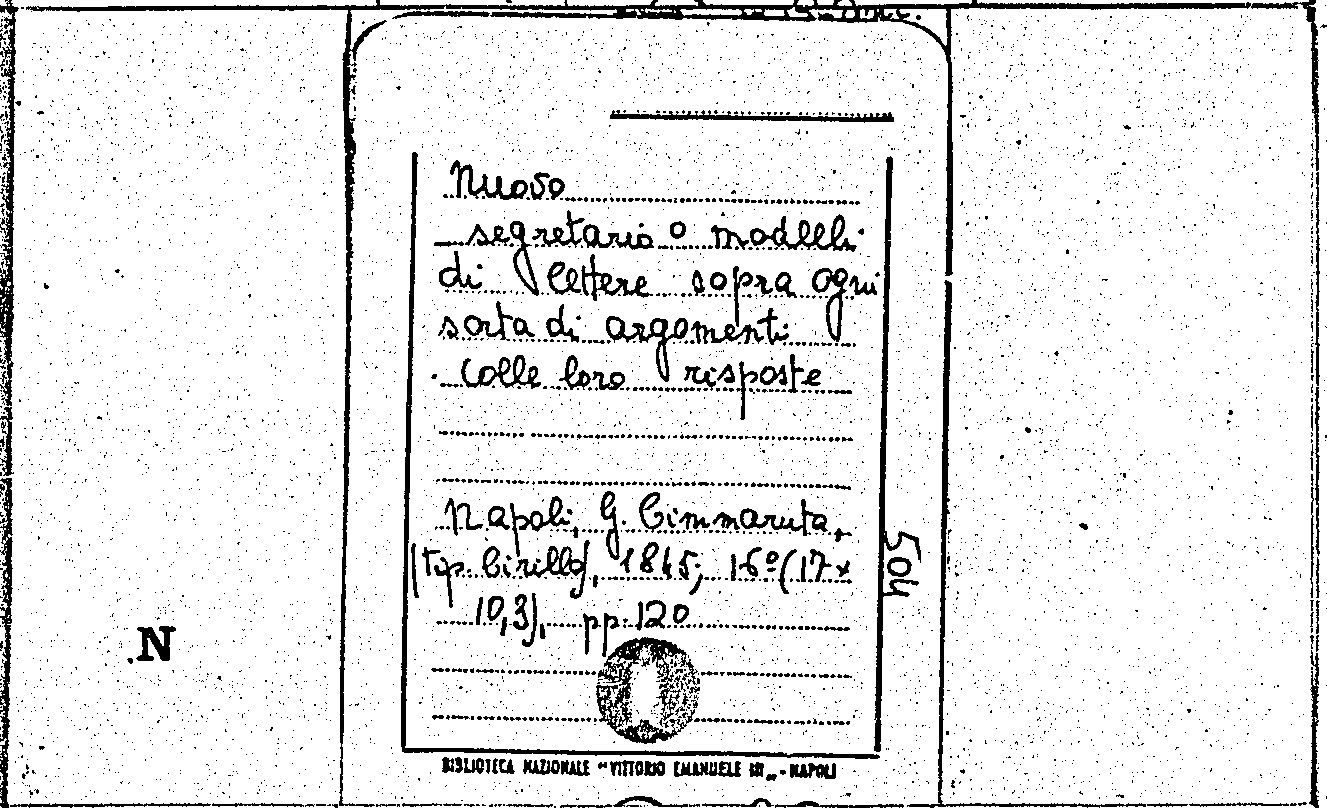 Nuovo
segretario o modelli
di lettere sopra ogni
sorta di argomenti
colle loro risposte
Napoli, G. Cimmaruta,
(tip. Cirillo), 1845; 16º (17 x
10,3), pp. 120
504
N
BIBLIOTECA NAZIONALE "VITTORIO EMANUELE III„ - NAPOLI